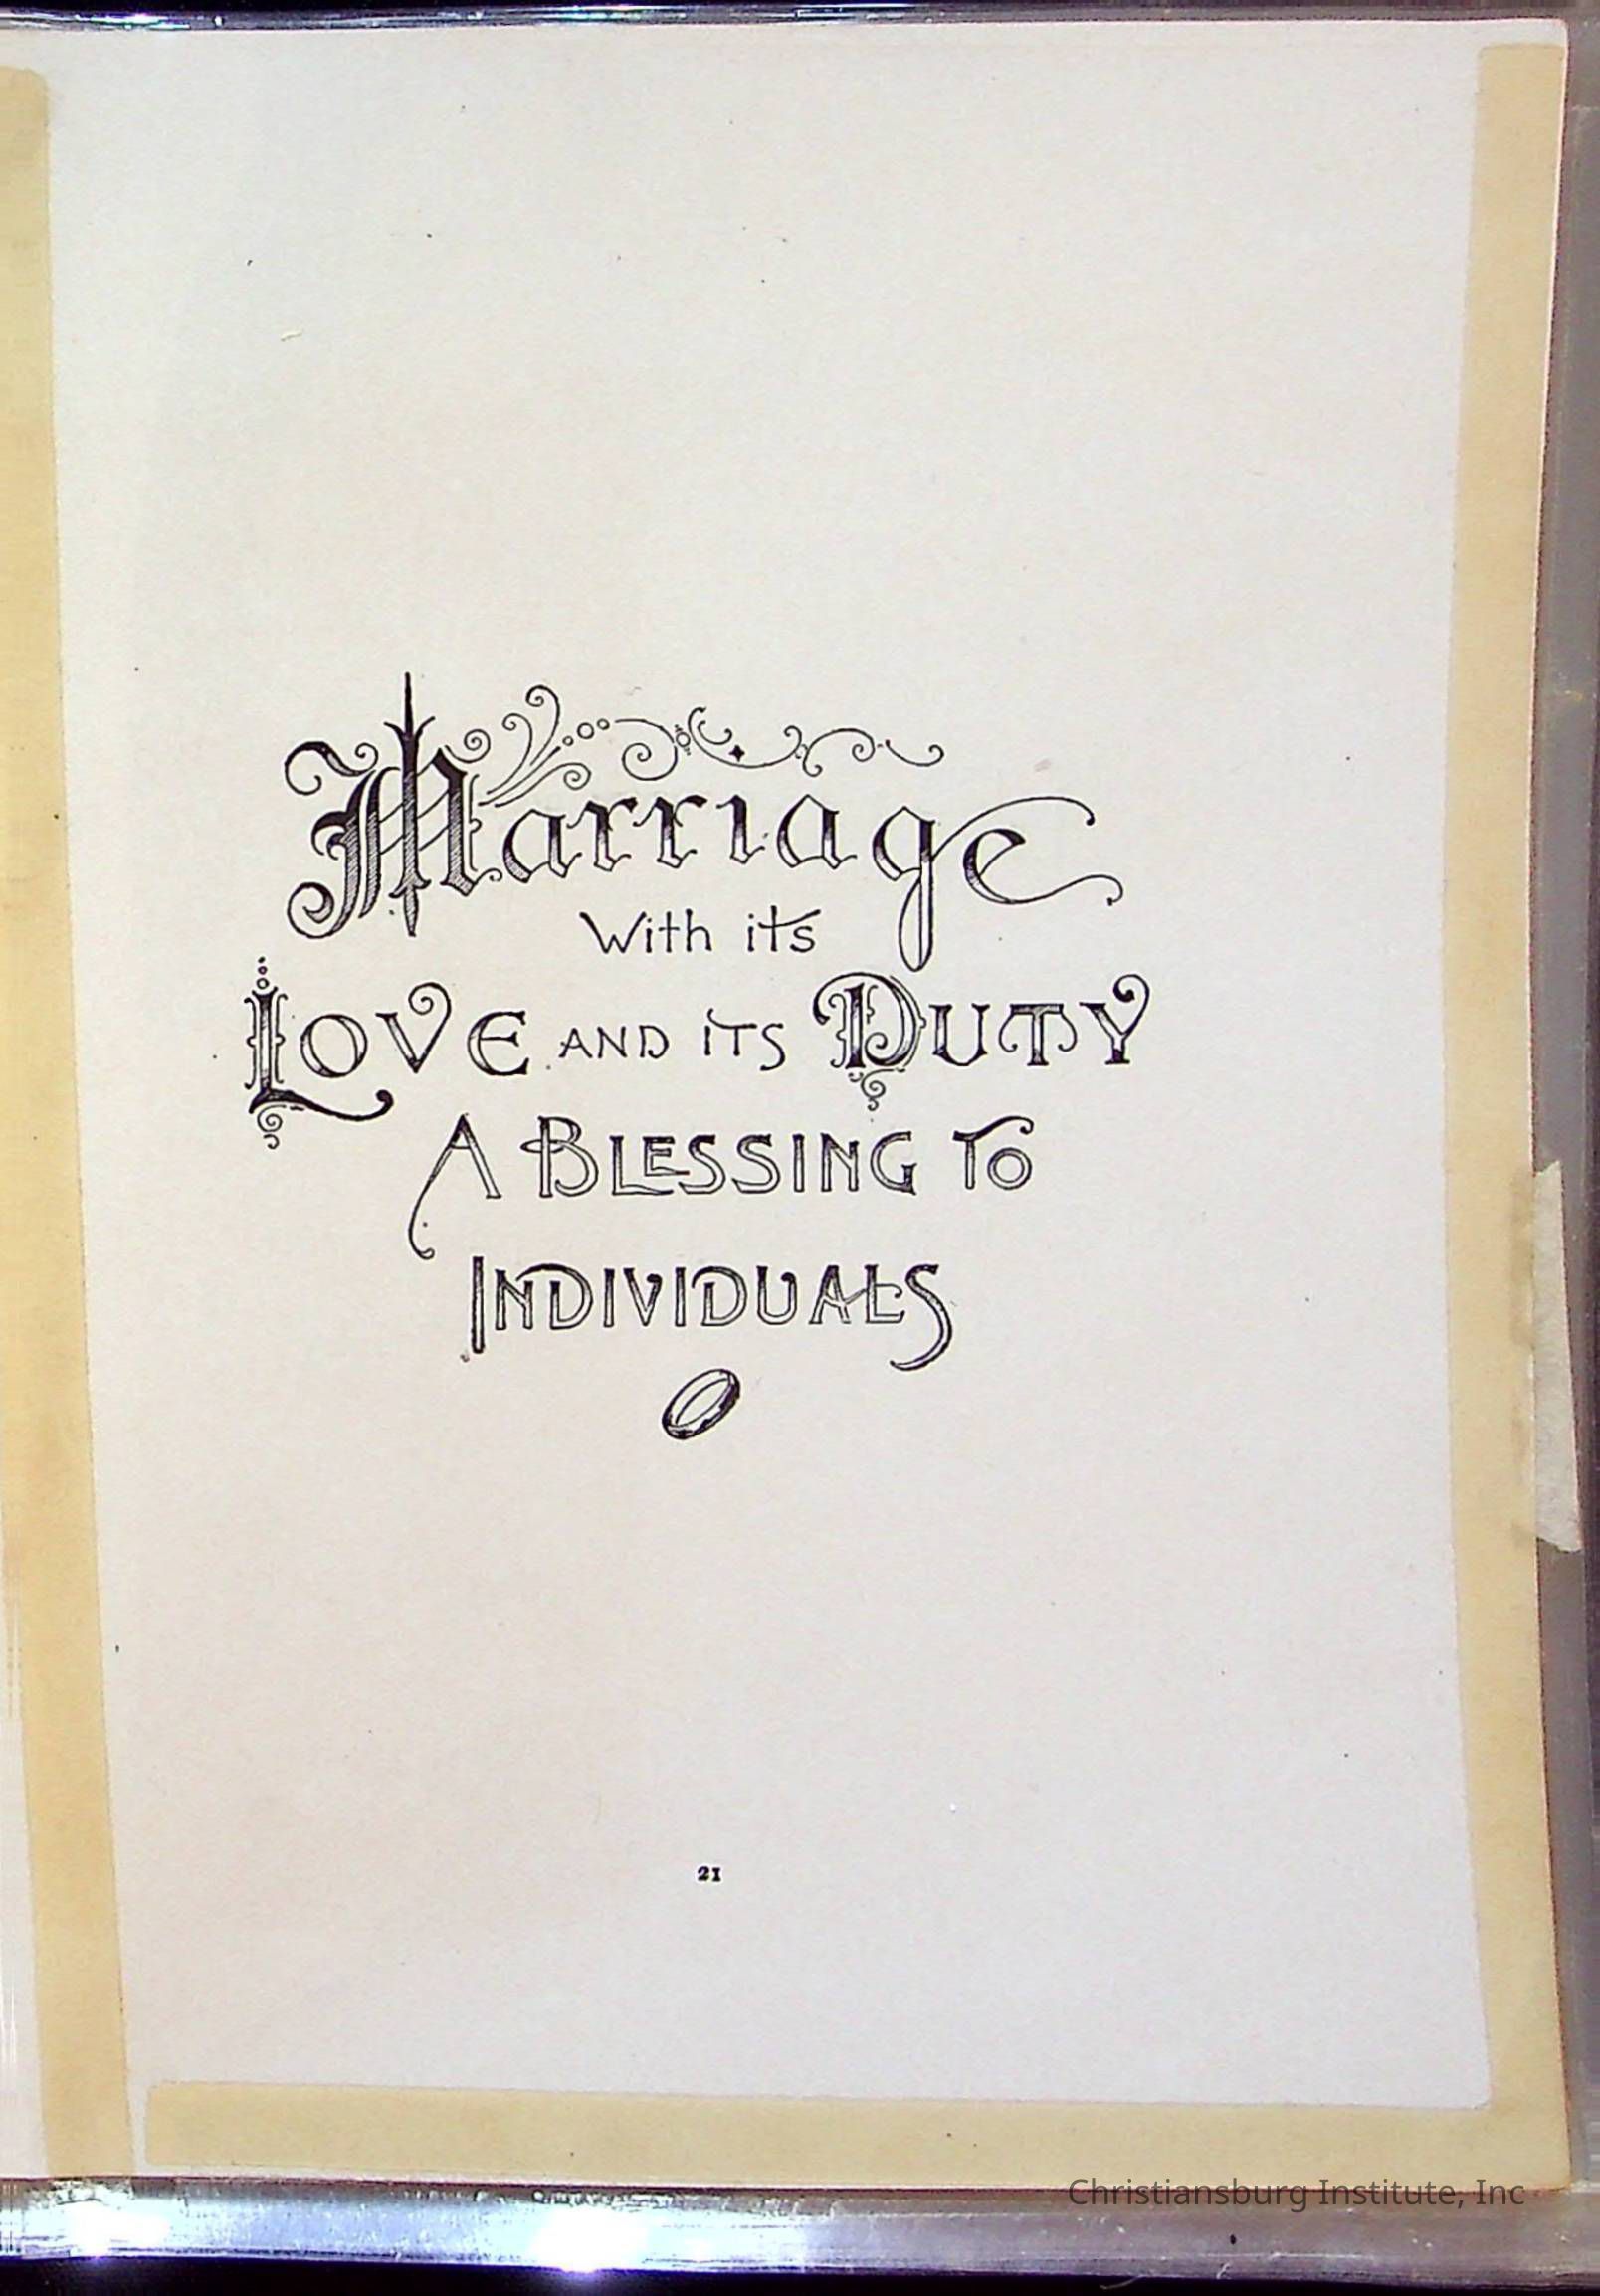 Marriage
With its
LOVE AND ITS DUTY
A BLESSING TO
INDIVIDUALS
21
Christiansburg Institute, Inc